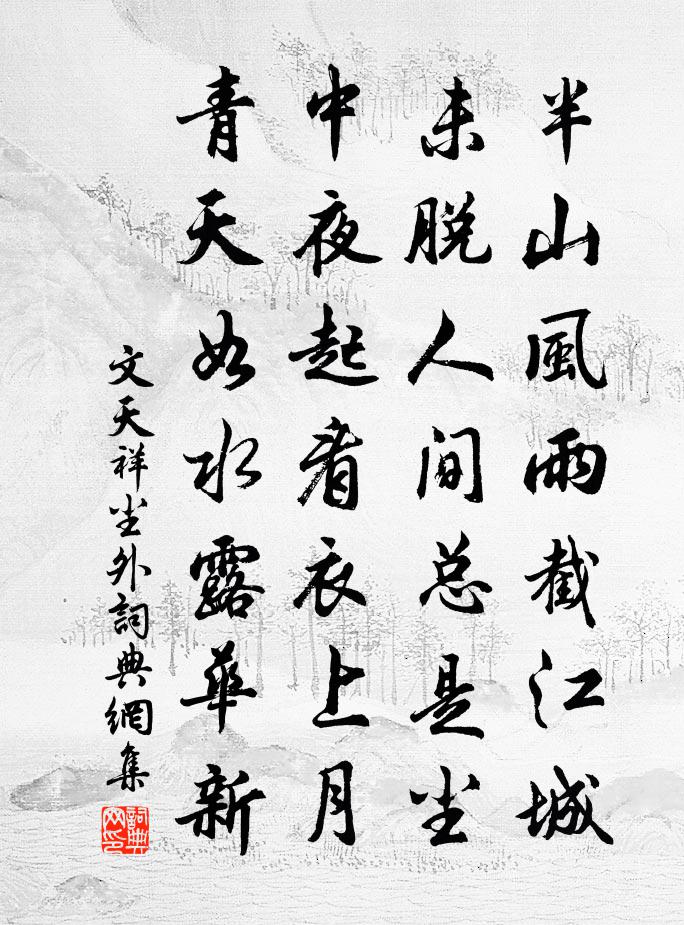 半山風雨截江城
未脱人间总是尘
中夜起看衣上月
青天如水露華新
文天祥尘外詞典網集
詞典
网印